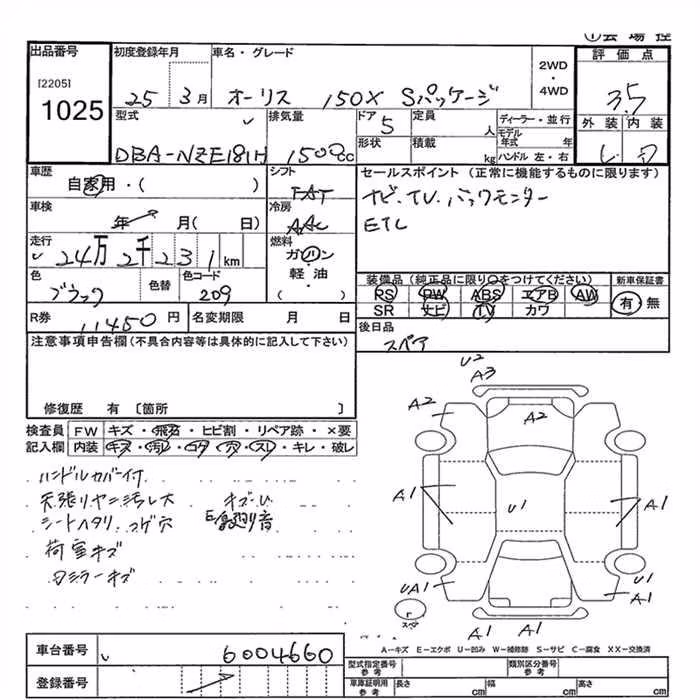 ①会場控
出品番号
[2205]
1025
初度登録年月
25 3月
車名・グレード
オーリス 150X Sパッケージ
2WD
・
4WD
評価点
3.5
外装 内装
型式
DBA-NZE181H
排気量
1500cc
ドア 5
形状
定員 人
積載 kg
ディーラー・並行
モデル年式 年
ハンドル 左・右
車歴
自家用・( )
シフト
FAT
車検
年 月( 日)
冷房
AAC
走行
24万2千231km
燃料
ガソリン
軽油
( )
色
ブラック
色替
色コード
209
セールスポイント (正常に機能するものに限ります)
ナビ・TV.バックモンター
ETC
装備品(純正品に限り○をつけてください)
PS PW ABS エアB AW
SR ナビ TV カワ
新車保証書
有・無
R券 11450円
名変期限 月 日
後日品
スペア
注意事項申告欄(不具合内容等は具体的に記入して下さい)
修復歴 有 〔箇所 〕
検査員 FW キズ・飛石・ヒビ割・リペア跡・×要
記入欄 内装 キズ・汚レ・コゲ・穴・スレ・キレ・破レ
ハンドルカバー付
天張りヤニ汚レ大 キズ・U
シートヘタリ コゲ穴
荷室キズ
Dミラーキズ
U2
A3
A2
A2
A1
U1
A1
UA1
U1
A1
r
スペア
A1
A1
A-キズ E-エクボ U-凹み W-補修跡 S-サビ C-腐食 XX-交換済
車台番号
6004660
登録番号
型式指定番号 参考
類別区分番号 参考
車庫証明用 参考
長さ cm
幅 cm
高さ cm